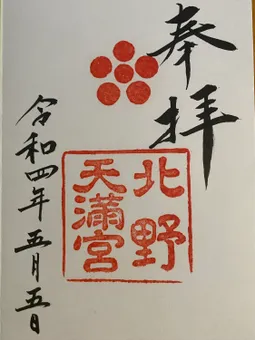 奉拝
北野
天満宮
令和四年五月五日